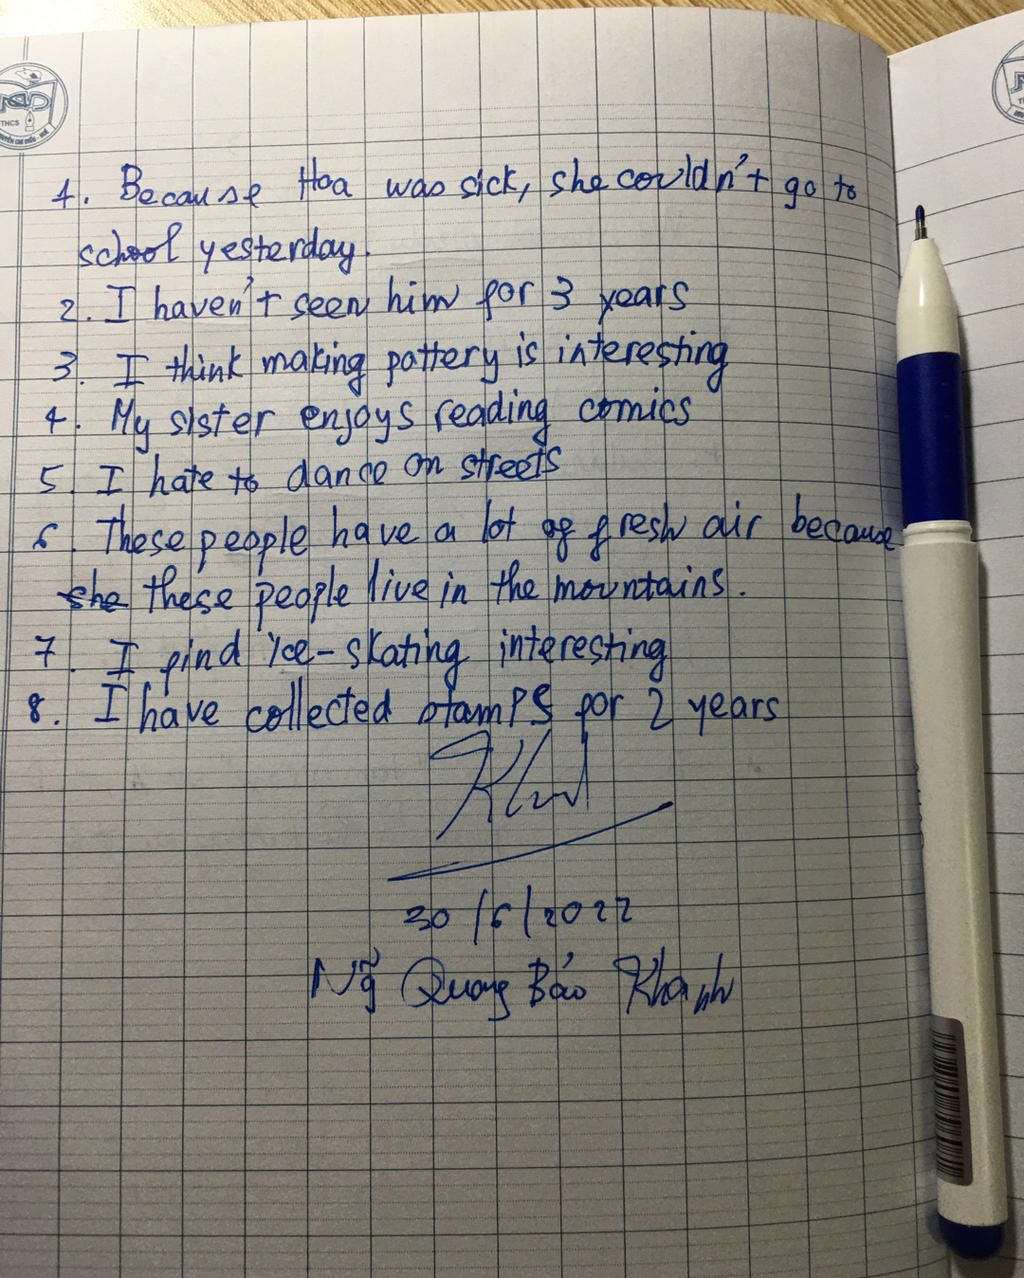 THCS
1. Because Hoa was sick, she couldn't go to
school yesterday.
2. I haven't seen him for 3 years
3. I think making pottery is interesting
4. My sister enjoys reading comics
5. I hate to dance on streets
6. These people have a lot of fresh air because
she these people live in the mountains.
7. I find ice-skating interesting
8. I have collected stamps for 2 years
30/6/2022
Ng̃ Quang Bảo Khanh